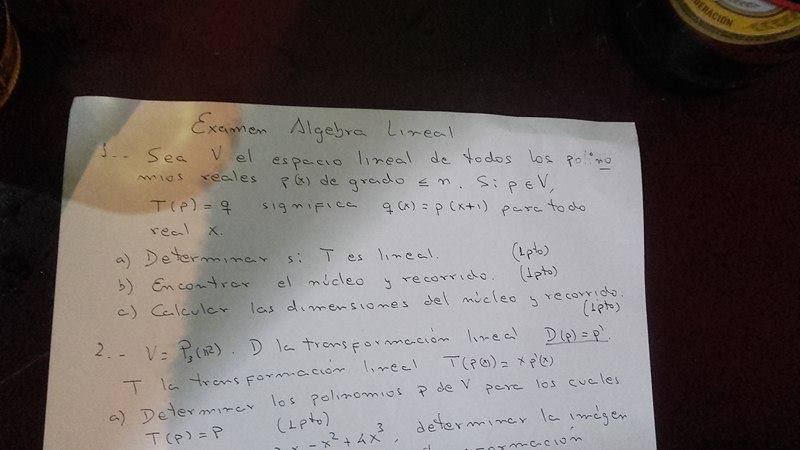 ERACIÓN
Examen Algebra Lineal
1.- Sea V el espacio lineal de todos los polino
mios reales p(x) de grado ≤ n. Si p ∈ V,
T(p) = q significa q(x) = p(x+1) para todo
real x.
a) Determinar si T es lineal. (1pto)
b) Encontrar el núcleo y recorrido. (1pto)
c) Calcular las dimensiones del núcleo y recorrido.
(1pto)
2.- V = P₃(R). D la transformación lineal D(p) = p'
T la transformación lineal T(p(x)) = x p'(x)
a) Determinar los polinomios p de V para los cuales
T(p) = p (1pto)
x - x² + 4x³, determinar la imágen